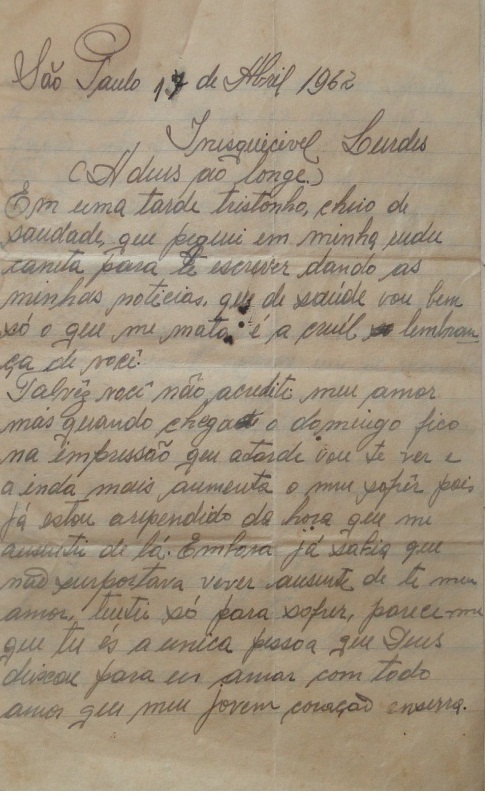 São Paulo 17 de Abril 1962
Inesquicível Lurdes
(A deus ao longe.)
Em uma tarde tristonha, cheio de
saudade, que peguei em minha rude
caneta para te escrever dando as
minhas noticias, que de saúde vou bem
só o que me mata é a cruél lembran
ça de você.
Talvêz você não acredite meu amor
más quando chega o domingo fico
na impressão que atarde vou te ver e
ainda mais aumenta o meu sofrêr pois
já estou arependido da hora que me
ausentei de lá. Embora já sabia que
não surportava viver ausente de te meu
amor, tentei só para sofrer, parece me
que tu és a unica pessoa que Deus
deixou para eu amar com todo
amor que meu jovem coração enserra.